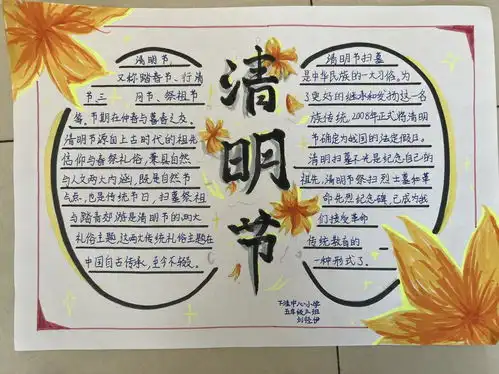 清明节
清明节，
又称踏青节、行清
节、三月节、祭祖节
等，节期在仲春与暮春之交。
清明节源自上古时代的祖先
信仰与春祭礼俗，兼具自然
与人文两大内涵，既是自然节
气点，也是传统节日，扫墓祭祖
与踏青郊游是清明节的两大
礼俗主题，这两大传统礼俗主题在
中国自古传承，至今不辍。
清明节扫墓
是中华民族的一大习俗，为
了更好的继承和发扬这一各
族传统，2008年正式将清明
节确定为我国的法定假日。
清明扫墓不光是纪念自己的
祖先，清明节祭扫烈士墓和革
命先烈纪念碑，已成为我
们接受革命
传统教育的
一种形式了。
下洼中心小学
五年级三班